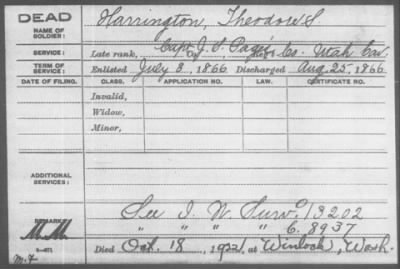 DEAD
NAME OF SOLDIER:
Harrington, Theodore S
SERVICE:
Late rank, Capt J. S. Page's Co. Utah Cav.
TERM OF SERVICE:
Enlisted July 3, 1866 Discharged Aug. 25, 1866
DATE OF FILING. CLASS. APPLICATION NO. LAW. CERTIFICATE NO.
Invalid,
Widow,
Minor,
ADDITIONAL SERVICES:
See I. W. Surv. O 13202
" " " C. 8937
REMARKS:
M.M.
Died Oct. 18, 1922, at Winlock, Wash.